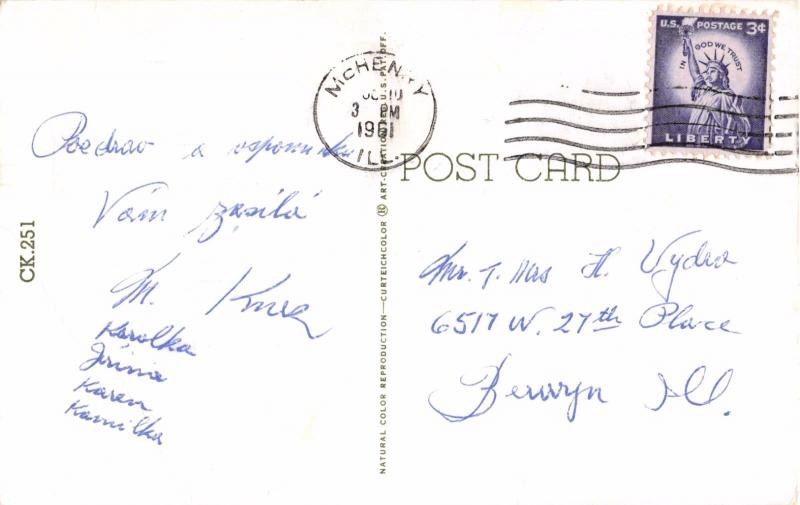 Pozdrav a vzpomínku
Vám zasílá
M.
Karolka
Jiřina
Karen
Kamilka
CK.251
NATURAL COLOR REPRODUCTION—CURTEICHCOLOR ® ART-CREATION REG. U.S. PAT. OFF.
McHENRY
3 PM
1961
ILL.
U.S. POSTAGE 3¢
IN GOD WE TRUST
LIBERTY
POST CARD
Mr. & Mrs H. Vydra
6517 W. 27th Place
Berwyn Ill.